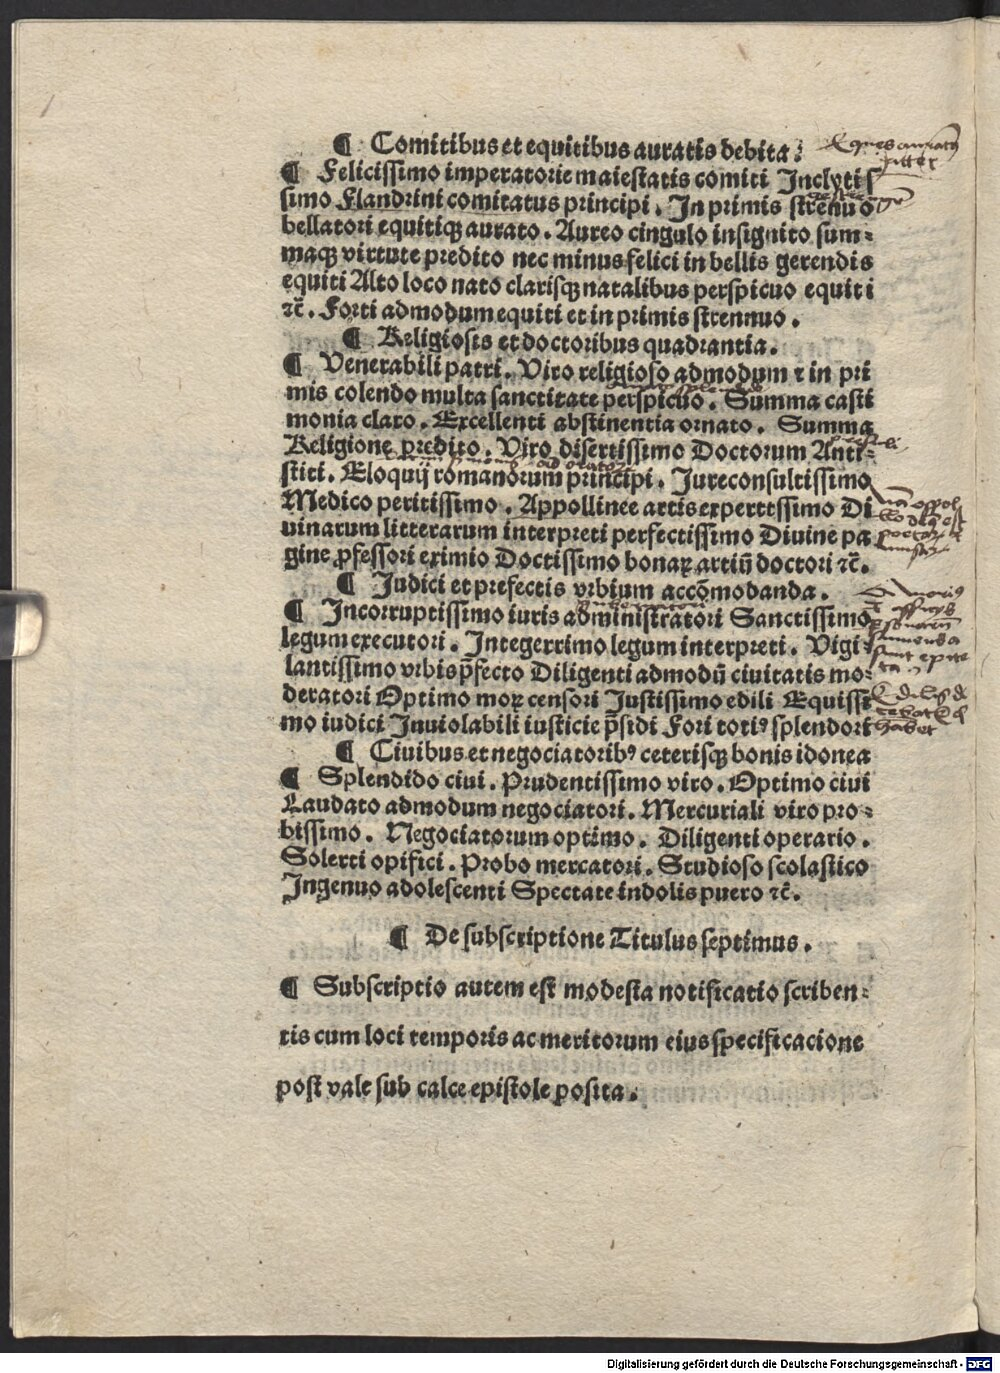 ¶ Comitibus et equitibus auratis debita.
¶ Felicissimo imperatorie maiestatis comiti Inclytiſ
simo Flandrini comitatus principi. In primis ſtrenuo
bellatori equitiqꝫ aurato. Aureo cingulo insignito sum⸗
maqꝫ virtute predito nec minus felici in bellis gerendis
equiti Alto loco nato clarisqꝫ natalibus perspicuo equiti
⁊c̄. Forti admodum equiti et in primis ſtrennuo.
¶ Religiosis et doctoribus quadrantia.
¶ Venerabili patri. Viro religioſo admodum ⁊ in pri
mis colendo multa ſanctitate perſpicuo. Summa caſti
monia claro. Excellenti abſtinentia ornato. Summa
Religione predito. Viro diſertiſſimo Doctorum Anti⸗
ſtiti. Eloquij romanorum principi. Jureconſultiſſimo
Medico peritiſſimo. Appollinee artis expertiſſimo Di
uinarum litterarum interpreti perfectiſſimo Diuine pa
gine ꝓfeſſori eximio Doctiſſimo bonaꝝ artiū doctori ⁊c̄.
¶ Judici et prefectis vrbium accōmodanda.
¶ Incorruptiſſimo iuris adminiſtratori Sanctiſſimo
legum executori. Integerrimo legum interpreti. Vigi⸗
lantiſſimo vrbis p̄fecto Diligenti admodū ciuitatis mo⸗
deratori Optimo moꝝ cenſori Juſtiſſimo edili Equiſſi
mo iudici Inuiolabili iuſticie p̄ſidi Fori totiꝰ ſplendori
¶ Ciuibus et negociatoribꝰ ceterisqꝫ bonis idonea
¶ Splendido ciui. Prudentiſſimo viro. Optimo ciui
Laudato admodum negociatori. Mercuriali viro pro⸗
biſſimo. Negociatorum optimo. Diligenti operario.
Solerti opifici. Probo mercatori. Studioſo ſcolaſtico
Ingenuo adoleſcenti Spectate indolis puero ⁊c̄.
¶ De ſubſcriptione Titulus ſeptimus.
¶ Subſcriptio autem eſt modeſta notificatio ſcriben⸗
tis cum loci temporis ac meritorum eius ſpecificacione
poſt vale ſub calce epiſtole poſita.
Digitalisierung gefördert durch die Deutsche Forschungsgemeinschaft - DFG